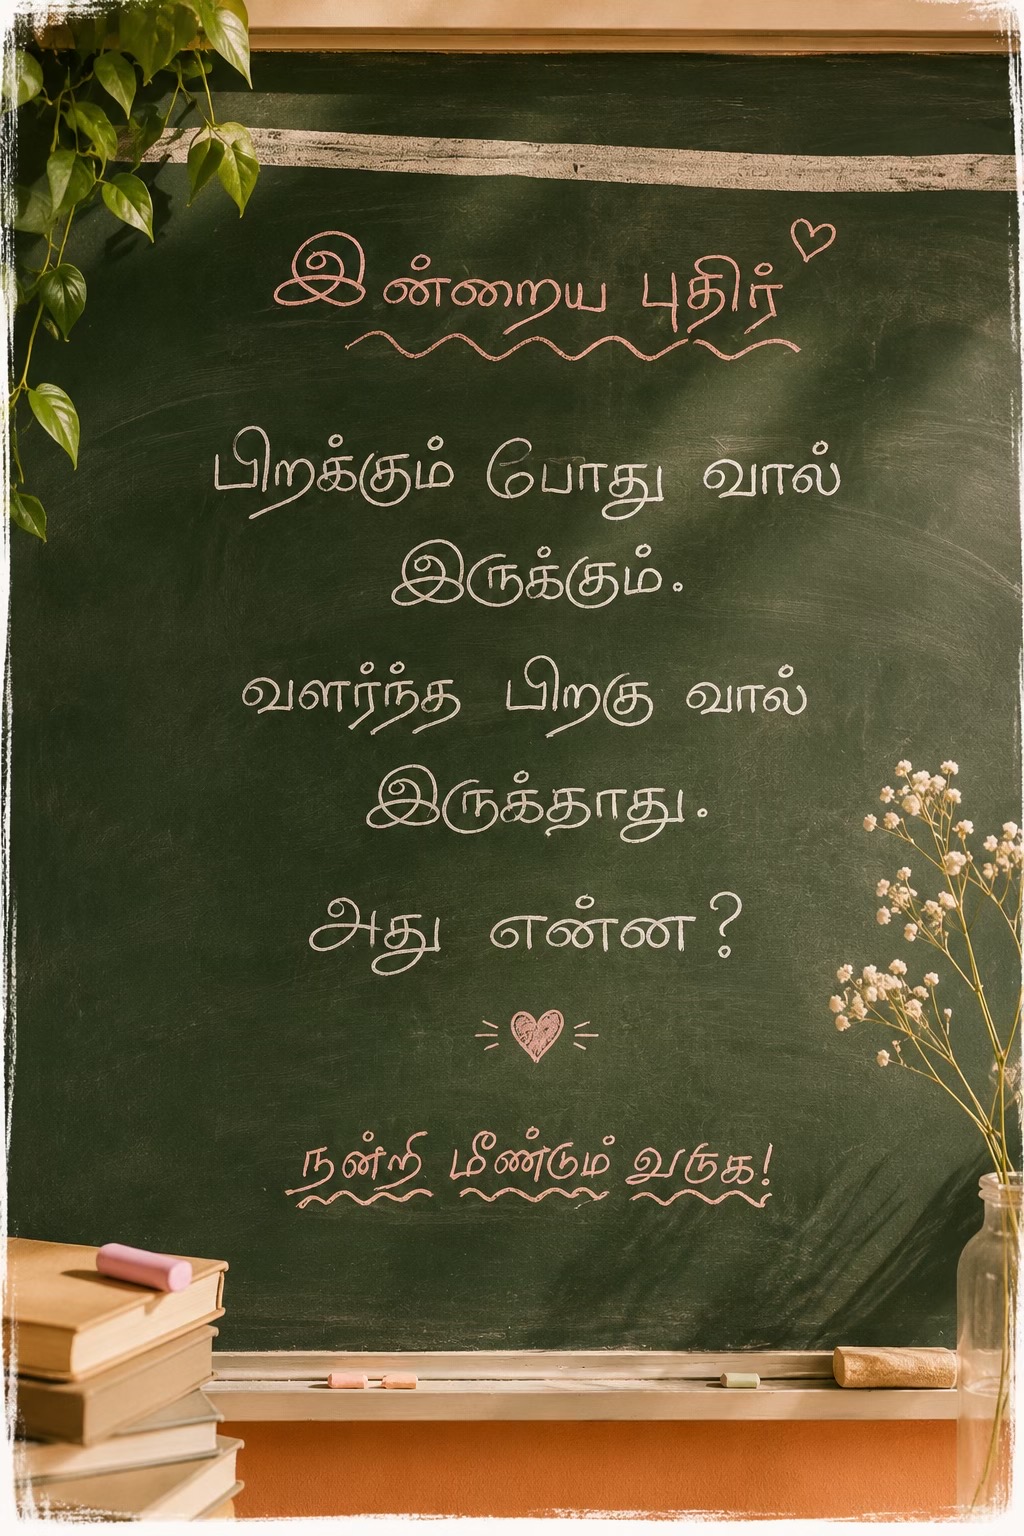 இன்றைய புதிர்
பிறக்கும் போது வால்
இருக்கும்.
வளர்ந்த பிறகு வால்
இருக்தாது.
அது என்ன?
நன்றி மீண்டும் வருக!